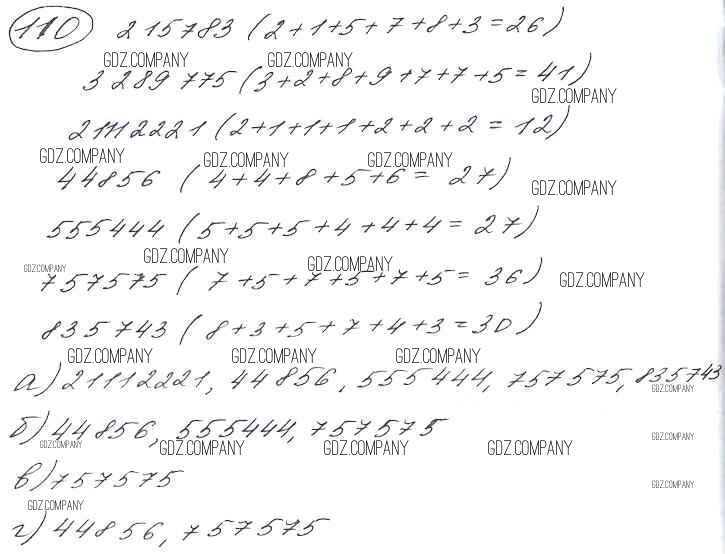 110 215783 (2+1+5+7+8+3=26)
GDZ.COMPANY GDZ.COMPANY
3289775 (3+2+8+9+7+7+5=41)
GDZ.COMPANY
21112221 (2+1+1+1+2+2+2=12)
GDZ.COMPANY GDZ.COMPANY GDZ.COMPANY
44856 (4+4+8+5+6=27)
GDZ.COMPANY
555444 (5+5+5+4+4+4=27)
GDZ.COMPANY GDZ.COMPANY
GDZ.COMPANY
757575 (7+5+7+5+7+5=36)
GDZ.COMPANY
835743 (8+3+5+7+4+3=30)
GDZ.COMPANY GDZ.COMPANY GDZ.COMPANY
а) 21112221, 44856, 555444, 757575, 835743
GDZ.COMPANY
б) 44856, 555444, 757575
GDZ.COMPANY GDZ.COMPANY GDZ.COMPANY GDZ.COMPANY GDZ.COMPANY
в) 757575
GDZ.COMPANY
GDZ.COMPANY
г) 44856, 757575